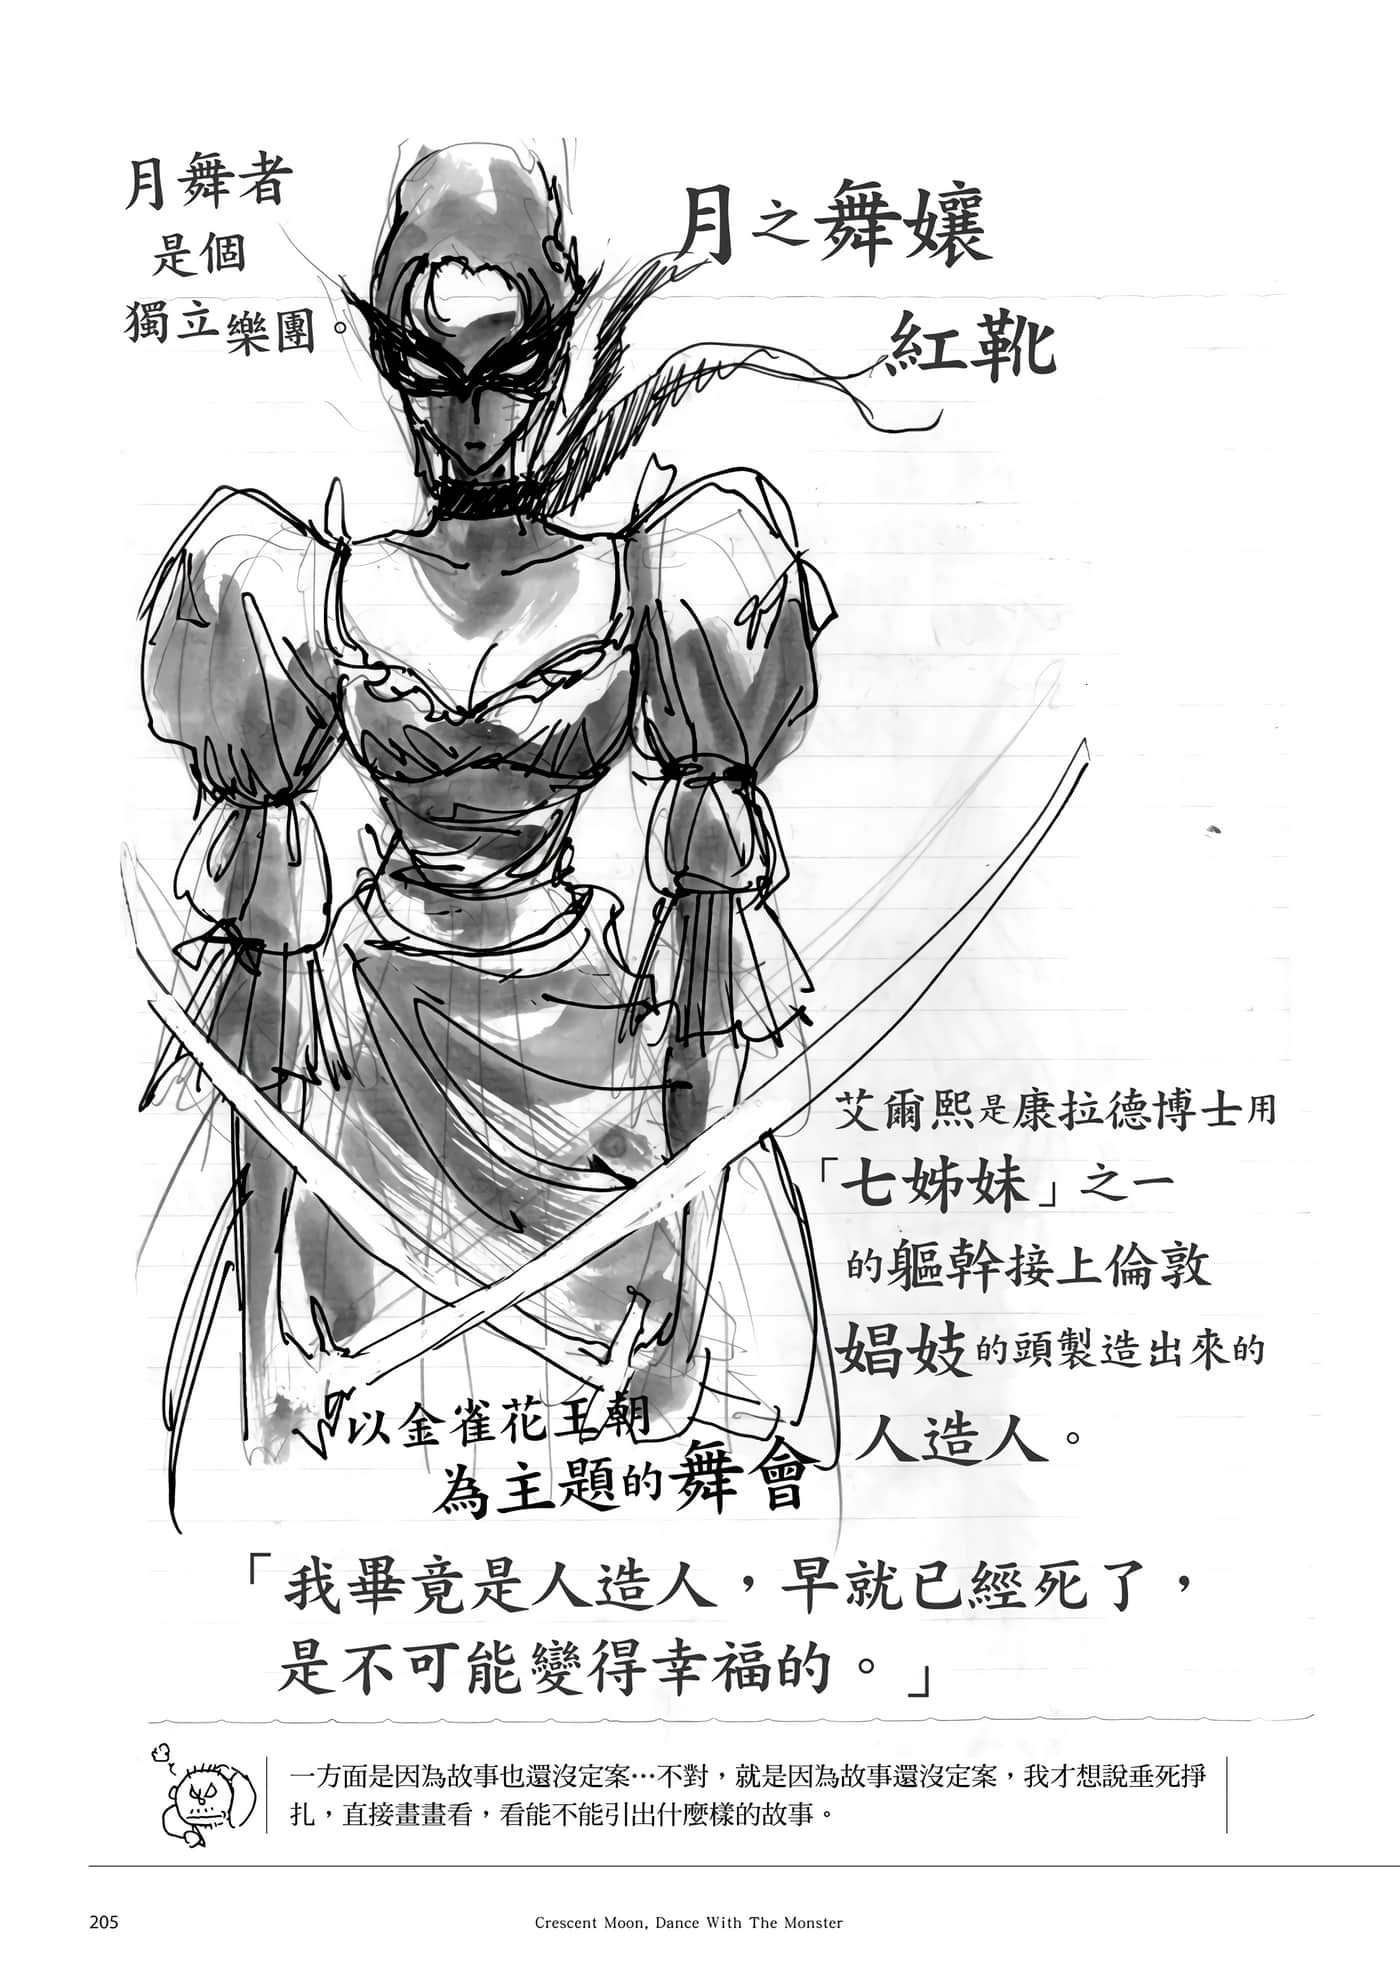 月舞者
是個
獨立樂團。
月之舞孃
紅靴
艾爾熙是康拉德博士用
「七姊妹」之一
的軀幹接上倫敦
娼妓的頭製造出來的
人造人。
以金雀花王朝
為主題的舞會
「我畢竟是人造人，早就已經死了，
是不可能變得幸福的。」
一方面是因為故事也還沒定案…不對，就是因為故事還沒定案，我才想說垂死掙
扎，直接畫畫看，看能不能引出什麼樣的故事。
205
Crescent Moon, Dance With The Monster